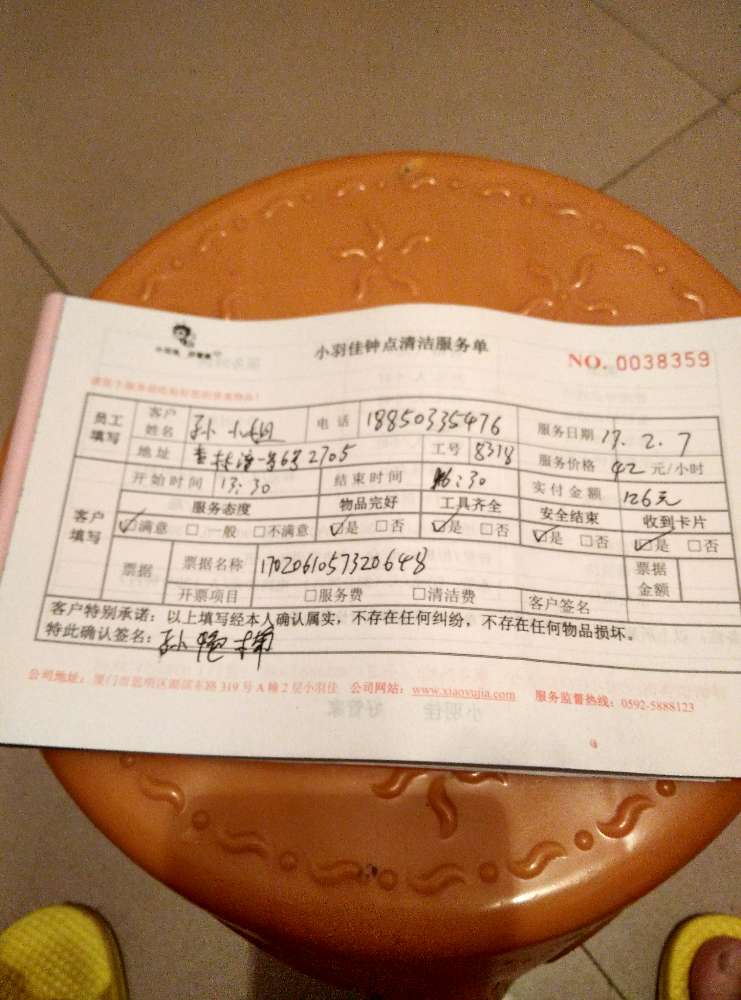 小羽佳 好管家
小羽佳钟点清洁服务单
NO. 0038359
员工填写 客户姓名 孙小姐 电话 18850335476 服务日期 17.2.7
地址 6号2705 工号 8318 服务价格 42 元/小时
开始时间 13:30 结束时间 16:30 实付金额 126元
客户填写 服务态度 物品完好 工具齐全 安全结束 收到卡片
☑满意 □一般 □不满意 ☑是 □否 ☑是 □否 ☑是 □否 ☑是 □否
票据 票据名称 1702061057320648 票据金额
开票项目 □服务费 □清洁费 客户签名
客户特别承诺：以上填写经本人确认属实，不存在任何纠纷，不存在任何物品损坏。
特此确认签名：孙艳
公司地址：厦门市思明区湖滨东路319号A幢2层小羽佳 公司网站：www.xiaoyujia.com 服务监督热线：0592-5888123